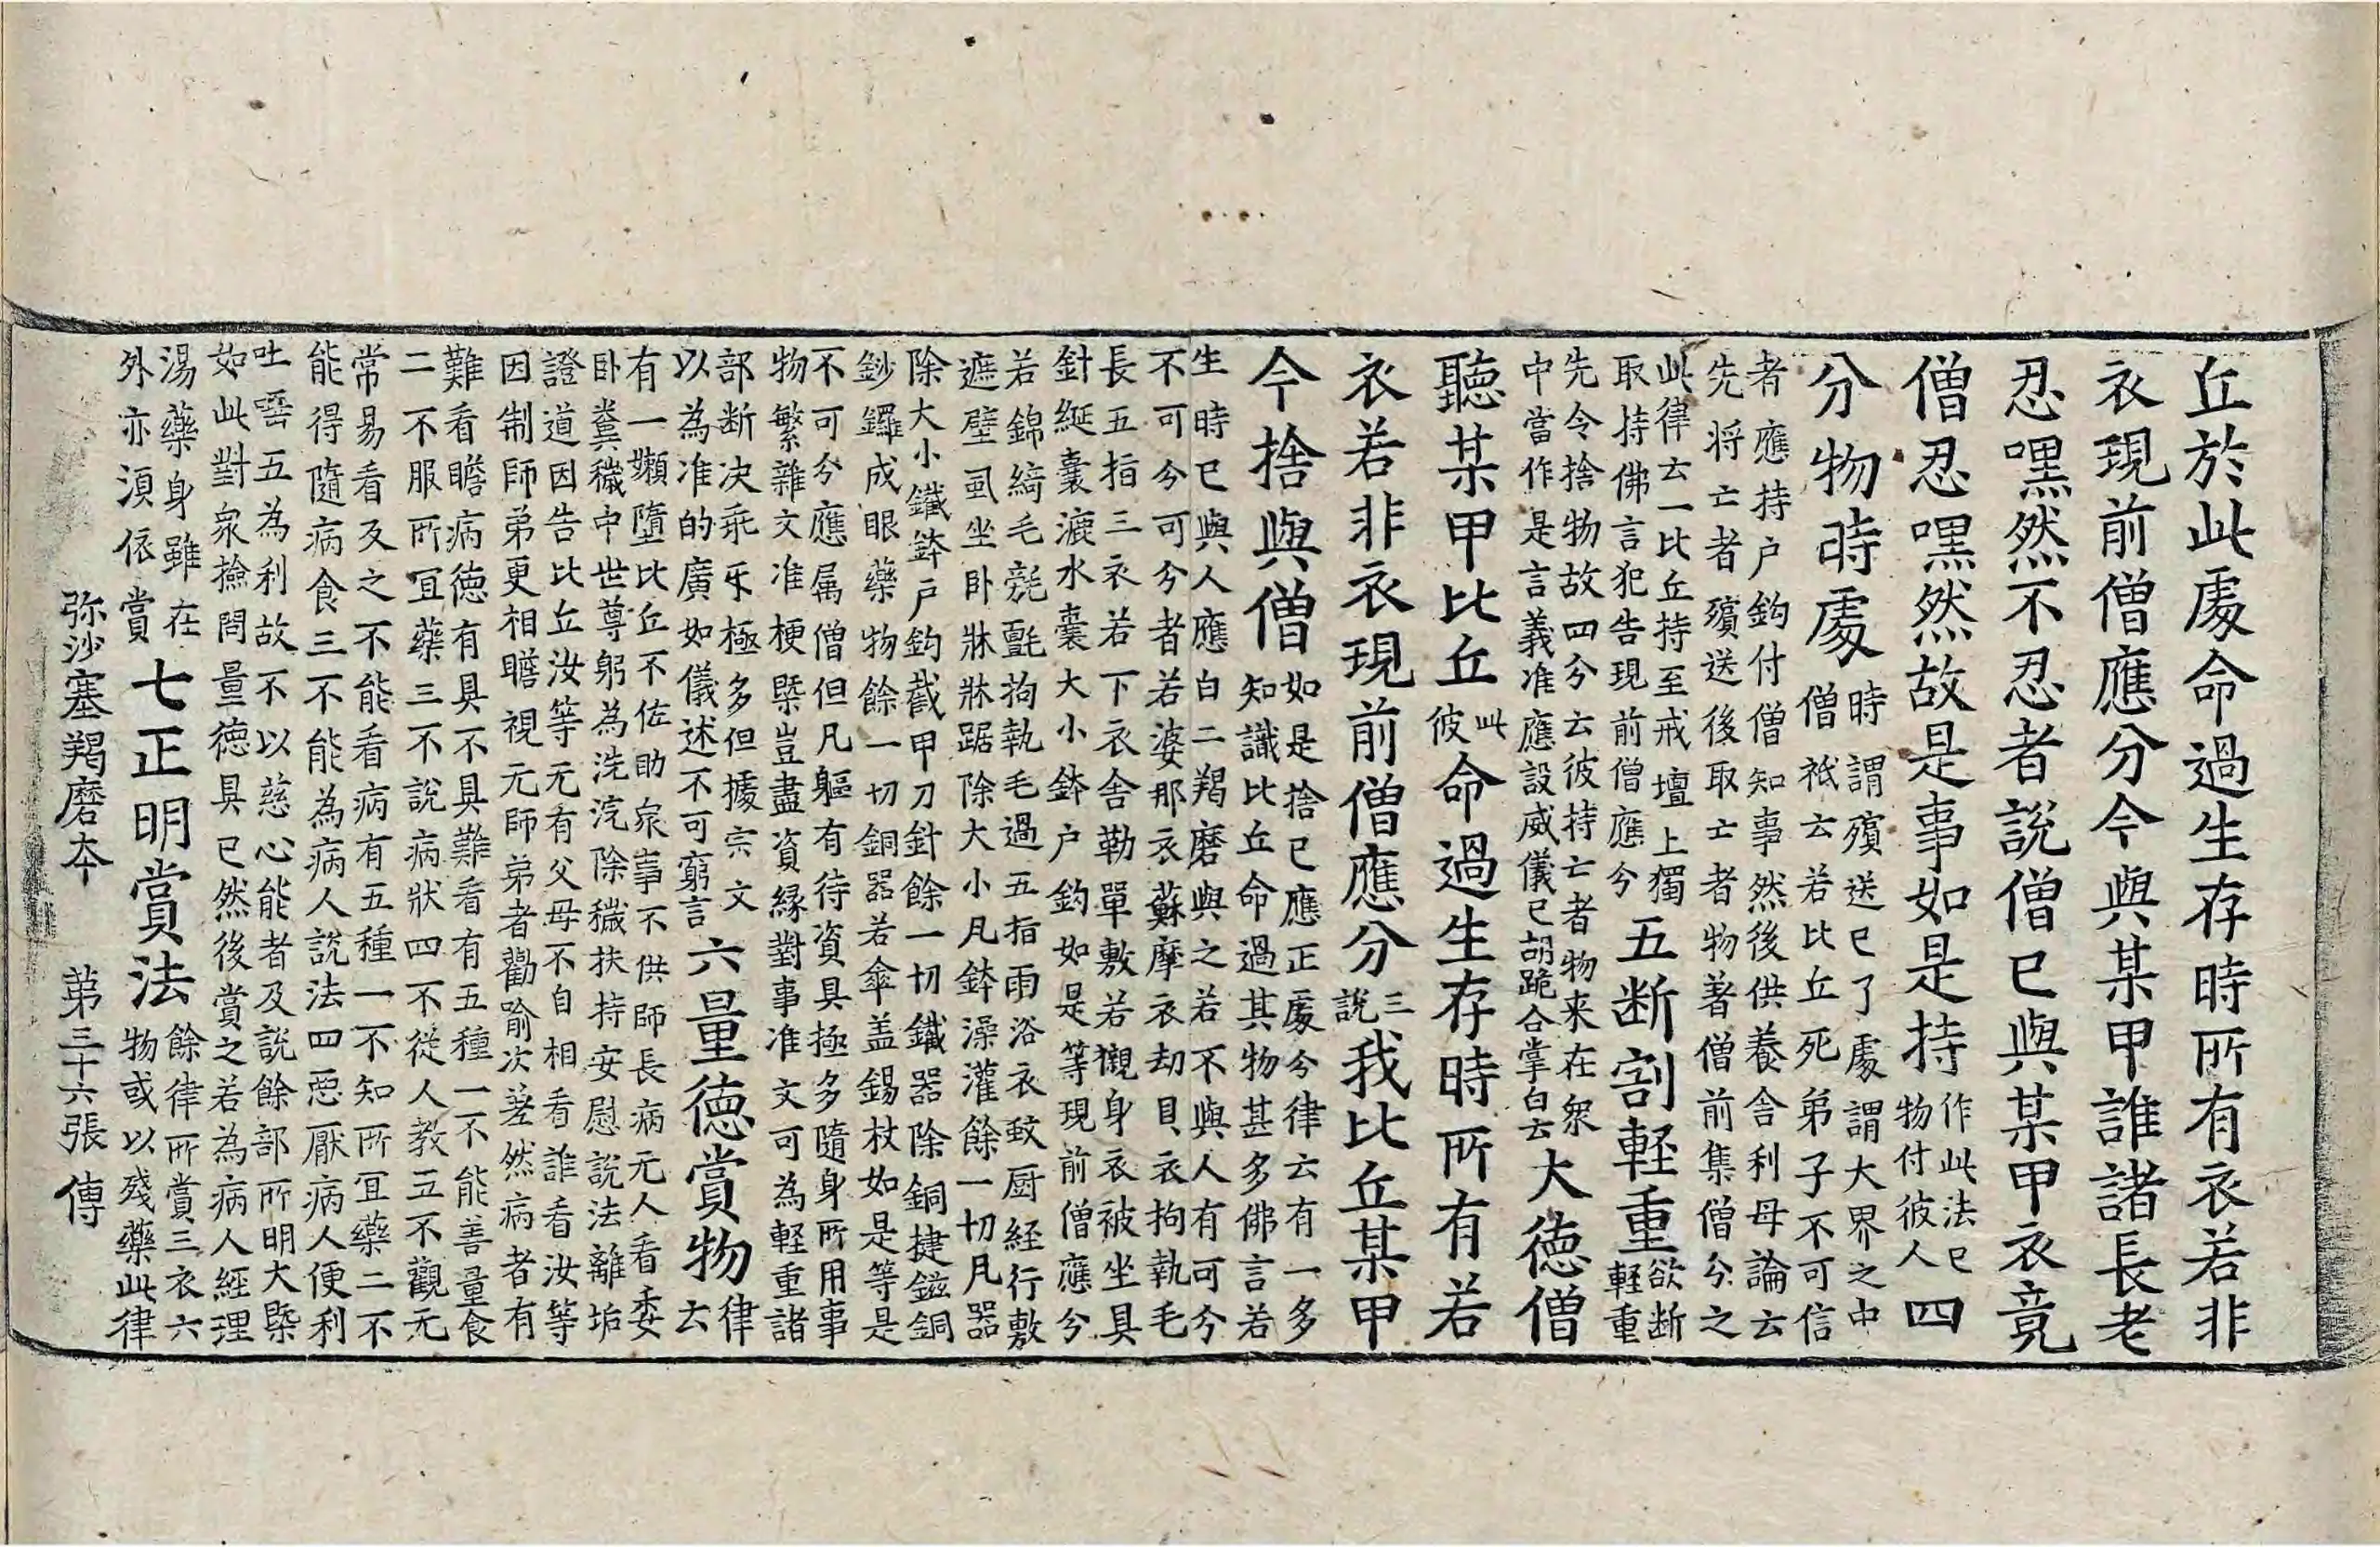 丘於此處命過生存時所有衣若非
衣現前僧應分今與某甲誰諸長老
忍嘿然不忍者說僧已與某甲衣竟
僧忍嘿然故是事如是持
作此法已
物付彼人
四
分物時處
時謂殯送已了處謂大界之中
僧祇云若比丘死弟子不可信
者應持户鈎付僧知事然後供養舍利母論云
先将亡者殯送後取亡者物著僧前集僧分之
此律云一比丘持至戒壇上獨
取持佛言犯告現前僧應分
五断割軽重
欲断
軽重
先令捨物故四分云彼持亡者物来在衆
中當作是言義准應設威儀已胡跪合掌白云
大德僧
聽某甲比丘
此
彼
命過生存時所有若
衣若非衣現前僧應分
三
說
我比丘某甲
今捨與僧
如是捨已應正處分律云有一多
知識比丘命過其物甚多佛言若
生時已與人應白二羯磨與之若不與人有可分
不可分可分者若婆那衣蘇摩衣劫貝衣拘執毛
長五指三衣若下衣舎勒單敷若襯身衣被坐具
針綖囊漉水囊大小鉢户鈎如是等現前僧應分
若錦綺毛毲氎拘執毛過五指雨浴衣蚊厨経行敷
遮壁虱坐卧牀牀踞除大小凡鉢澡灌餘一切凡器
除大小鐵鉢户鈎截甲刀針餘一切鐵器除銅揵鎡銅
鈔鑼成眼藥物餘一切銅器若傘盖錫杖如是等是
不可分應属僧但凡軀有待資具極多隨身所用事
物繁雜文准梗槩豈盡資縁對事准文可為軽重諸
部断决乖㸦極多但據宗文
以為准的廣如儀述不可窮言
六量徳賞物
律
云
有一嬾墮比丘不佐助衆事不供師長病无人看委
卧糞穢中世尊躬為洗浣除穢扶持安慰說法離垢
證道因告比丘汝等无有父母不自相看誰看汝等
因制師弟更相瞻視元師弟者勸喻次差然病者有
難看瞻病徳有具不具難看有五種一不能善量食
二不服所宜藥三不說病狀四不從人教五不觀无
常易看反之不能看病有五種一不知所宜藥二不
能得隨病食三不能為病人說法四惡厭病人便利
吐唾五為利故不以慈心能者及說餘部所明大槩
如此對衆撿問量徳具已然後賞之若為病人經理
湯藥身雖在
外亦湏依賞
七正明賞法
餘律所賞三衣六
物或以殘藥此律
弥沙塞羯磨夲　第三十六張　傳